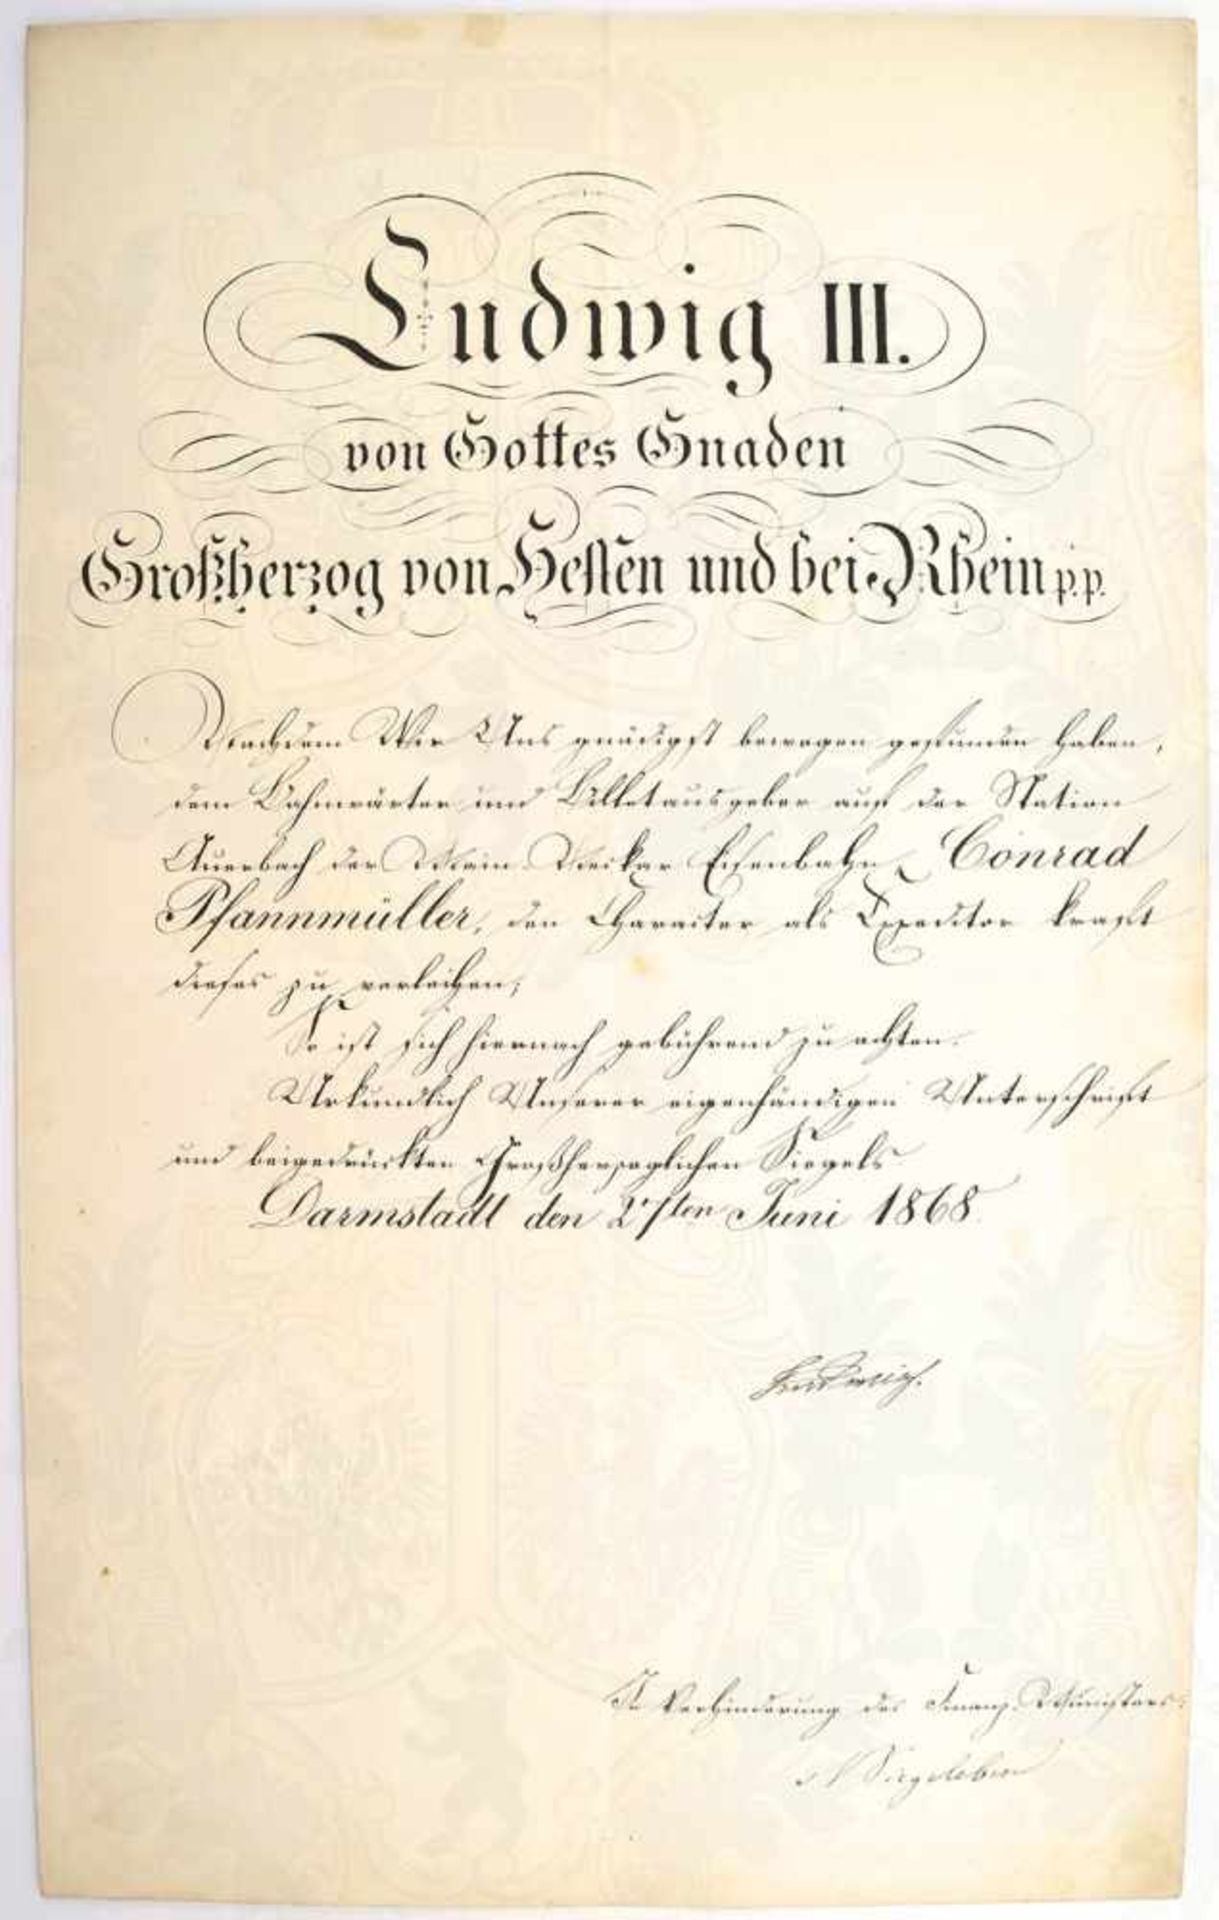 Ludwig III.
von Gottes Gnaden
Großherzog von Hessen und bei Rhein p.p.
Nachdem Wir Uns gnädigst bewogen gefunden haben,
dem Bahnwärter und Billetausgeber auf der Station
Auerbach der Main-Neckar Eisenbahn, Conrad
Pfannmüller, den Character als Expeditor kraft
dieses zu verleihen;
So ist sich hiernach gebührend zu achten.
Urkundlich Unserer eigenhändigen Unterschrift
und beigedrückten Großherzoglichen Siegels
Darmstadt den 2ten Juni 1868.
Ludwig.
In Verhinderung des Finanz-Ministers:
v Biegeleben